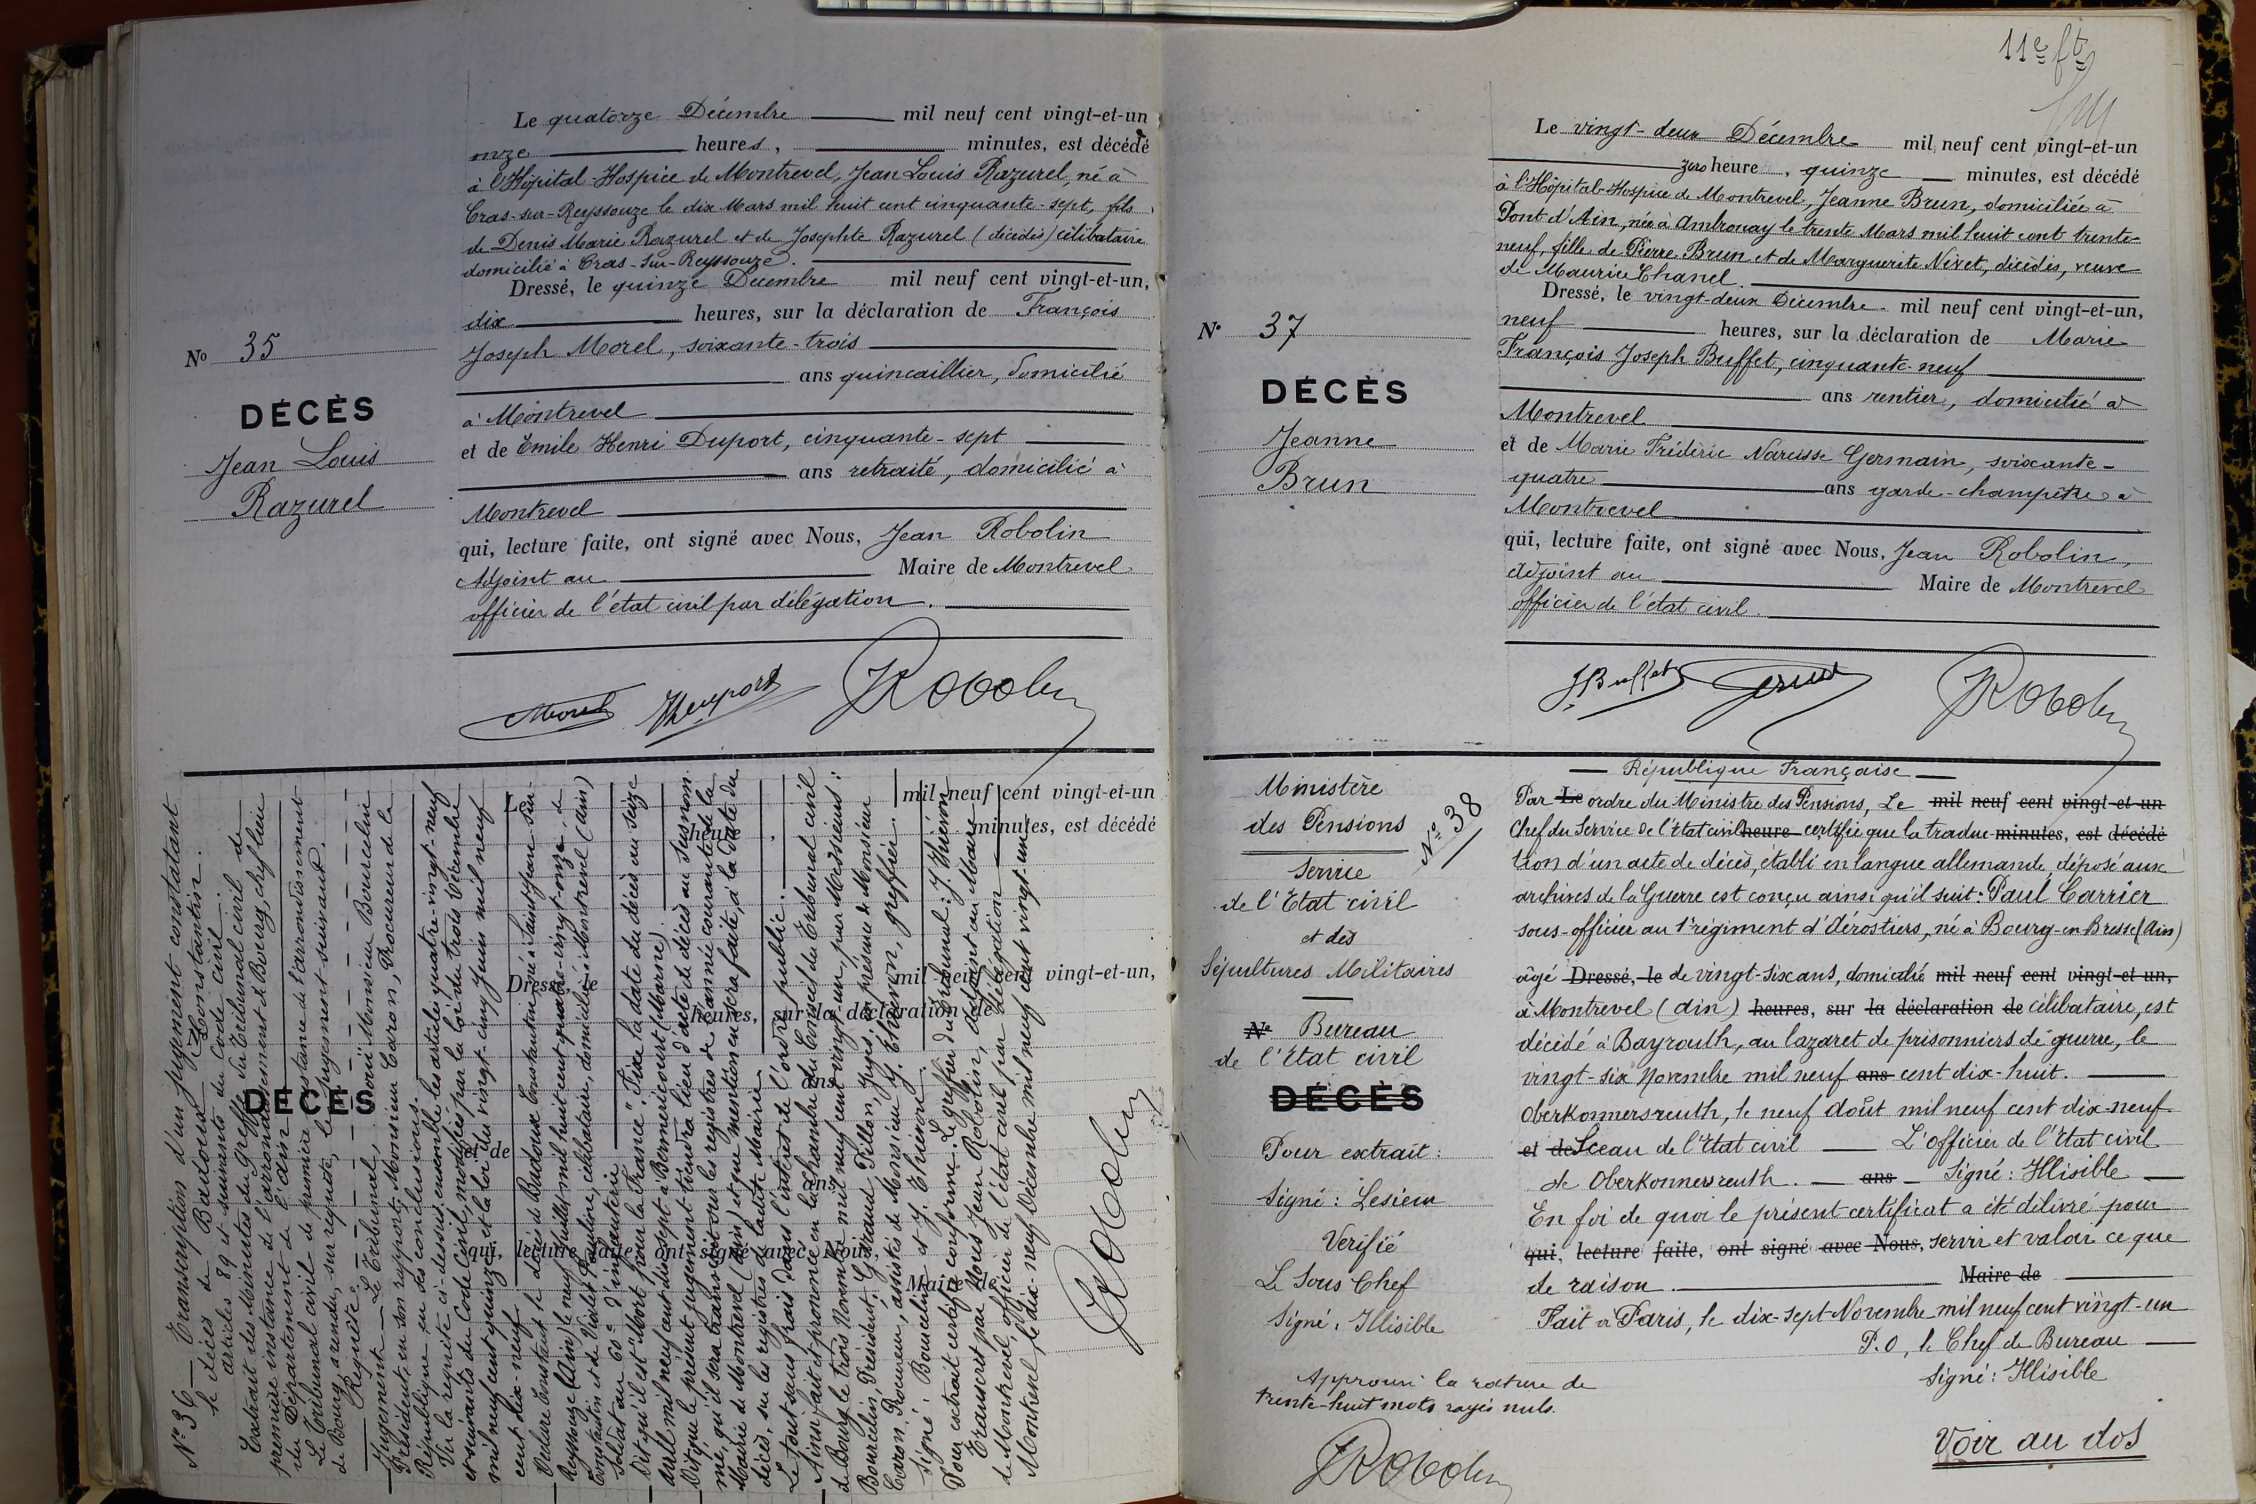 Le quatorze Décembre mil neuf cent vingt-et-un
onze heures, minutes, est décédé
à l'Hôpital-Hospice de Montrevel, Jean Louis Razurel, né à
Cras-sur-Reyssouze le dix Mars mil huit cent cinquante-sept, fils
de Denis Marie Razurel et de Josephte Razurel (décédés) célibataire
domicilié à Cras-sur-Reyssouze.
Dressé, le quinze Décembre mil neuf cent vingt-et-un,
dix heures, sur la déclaration de François
Joseph Morel, soixante-trois
ans quincaillier, domicilié
à Montrevel
et de Emile Henri Duport, cinquante-sept
ans retraité, domicilié à
Montrevel
qui, lecture faite, ont signé avec Nous, Jean Robolin
Adjoint au Maire de Montrevel
officier de l'état civil par délégation.
No 35
DÉCÈS
Jean Louis
Razurel
Morel HDuport JRobolin
N° 36 — Transcription d'un jugement constatant
le décès de Badoux Constantin.
articles 89 et suivants du Code civil.
Extrait des Minutes du Greffe du Tribunal civil de
première instance de l'arrondissement de Bourg, chef lieu
du Département de l'Ain
Le Tribunal civil de première instance de l'arrondissement
de Bourg, a rendu, sur requête, le jugement suivant.
Requête
Jugement — Le Tribunal, ouï Monsieur Bourcelin
Président, en son rapport, Monsieur Caron, Procureur de la
République en ses conclusions.
Vu la requête ci-dessus, ensemble les articles quatre-vingt-neuf
et suivants du Code Civil, modifiés par la loi du trois Décembre
mil neuf cent quinze et la loi du vingt-cinq Juin mil neuf
cent dix-neuf
Déclare constant le décès de Badoux Constantin, né à Saint Jean sur
Reyssouze (Ain) le neuf Juillet mil huit cent quatre-vingt-onze, de
Constantin et de Violet Pauline, célibataire, domicilié à Montrevel (Ain)
Soldat au 60e d'infanterie
Dit qu'il est "Mort pour la France". Fixe la date du décès au seize
avril mil neuf cent dix-sept à Berméricourt (Marne).
Dit que le présent jugement tiendra lieu d'acte de décès au sus nom
mé, qu'il sera transcrit sur les registres de l'année courante de la
Mairie de Montrevel (Ain) et que mention en sera faite, à la date du
décès, sur les registres de ladite Mairie
Le tout sans frais dans l'intérêt de l'ordre public.
Ainsi fait et prononcé en la Chambre du Conseil du Tribunal civil
de Bourg le trois Novembre mil neuf cent vingt-un, par Messieurs:
Bourcelin, Président, Giraud, Tillon, Juges, en présence de Monsieur
Caron, Procureur, assistés de Monsieur Y. Thiévon, greffier.
Signé: Bourcelin et Y. Thiévon.
Pour extrait certifié conforme. Le greffier du tribunal: J. Thiévon
Transcrit par Nous Jean Robolin, Adjoint au Maire
de Montrevel, officier de l'état civil par délégation
Montrevel, le dix-neuf Décembre mil neuf cent vingt-un
JRobolin
Le mil neuf cent vingt-et-un
heure minutes, est décédé
Dressé, le mil neuf cent vingt-et-un,
heures, sur la déclaration de
DÉCÈS
ans
et de
ans
qui, lecture faite, ont signé avec Nous,
Maire de
11e ft
Le vingt-deux Décembre mil neuf cent vingt-et-un
zéro heure, quinze minutes, est décédé
à l'Hôpital-Hospice de Montrevel, Jeanne Brun, domiciliée à
Pont d'Ain, née à Ambronay le trente Mars mil huit cent trente-
neuf, fille de Pierre Brun et de Marguerite Nivet, décédés, veuve
de Maurice Chanel.
Dressé, le vingt-deux Décembre mil neuf cent vingt-et-un,
neuf heures, sur la déclaration de Marie
François Joseph Buffet, cinquante-neuf
ans rentier, domicilié à
Montrevel
et de Marie Frédéric Narcisse Germain, soixante-
quatre ans garde-champêtre à
Montrevel
qui, lecture faite, ont signé avec Nous, Jean Robolin,
adjoint au Maire de Montrevel
officier de l'état civil.
N° 37
DÉCÈS
Jeanne
Brun
J.Buffet JRobolin
Ministère
des Pensions
Service
de l'Etat civil
et des
Sépultures Militaires
N° Bureau
de l'Etat civil
DÉCÈS
Pour extrait:
Signé: Lesieur
Vérifié
Le Sous Chef
Signé: Illisible
Approuvé la rature de
trente-huit mots rayés nuls.
JRobolin
N° 38
République Française
Par Le ordre du Ministre des Pensions, Le mil neuf cent vingt-et-un
Chef du Service de l'Etat civil heure certifie que la traduc- minutes, est décédé
tion d'un acte de décès, établi en langue allemande, déposé aux
archives de la Guerre est conçu ainsi qu'il suit: Paul Carrier
sous-officier au 1r régiment d'Aérostiers, né à Bourg-en-Bresse (Ain)
âgé Dressé, le de vingt-six ans, domicilié mil neuf cent vingt-et-un,
à Montrevel (Ain) heures, sur la déclaration de célibataire, est
décédé à Bayrouth, au lazaret de prisonniers de guerre, le
vingt-six Novembre mil neuf ans cent dix-huit.
Oberkonnersreuth, le neuf Août mil neuf cent dix-neuf
et de Sceau de l'Etat civil L'officier de l'Etat civil
de Oberkonnersreuth. ans Signé: Illisible
En foi de quoi le présent certificat a été délivré pour
qui, lecture faite, ont signé avec Nous, servir et valoir ce que
de raison. Maire de
Fait à Paris, le dix-sept Novembre mil neuf cent vingt-un
P.O, le Chef de Bureau
Signé: Illisible
Voir au dos